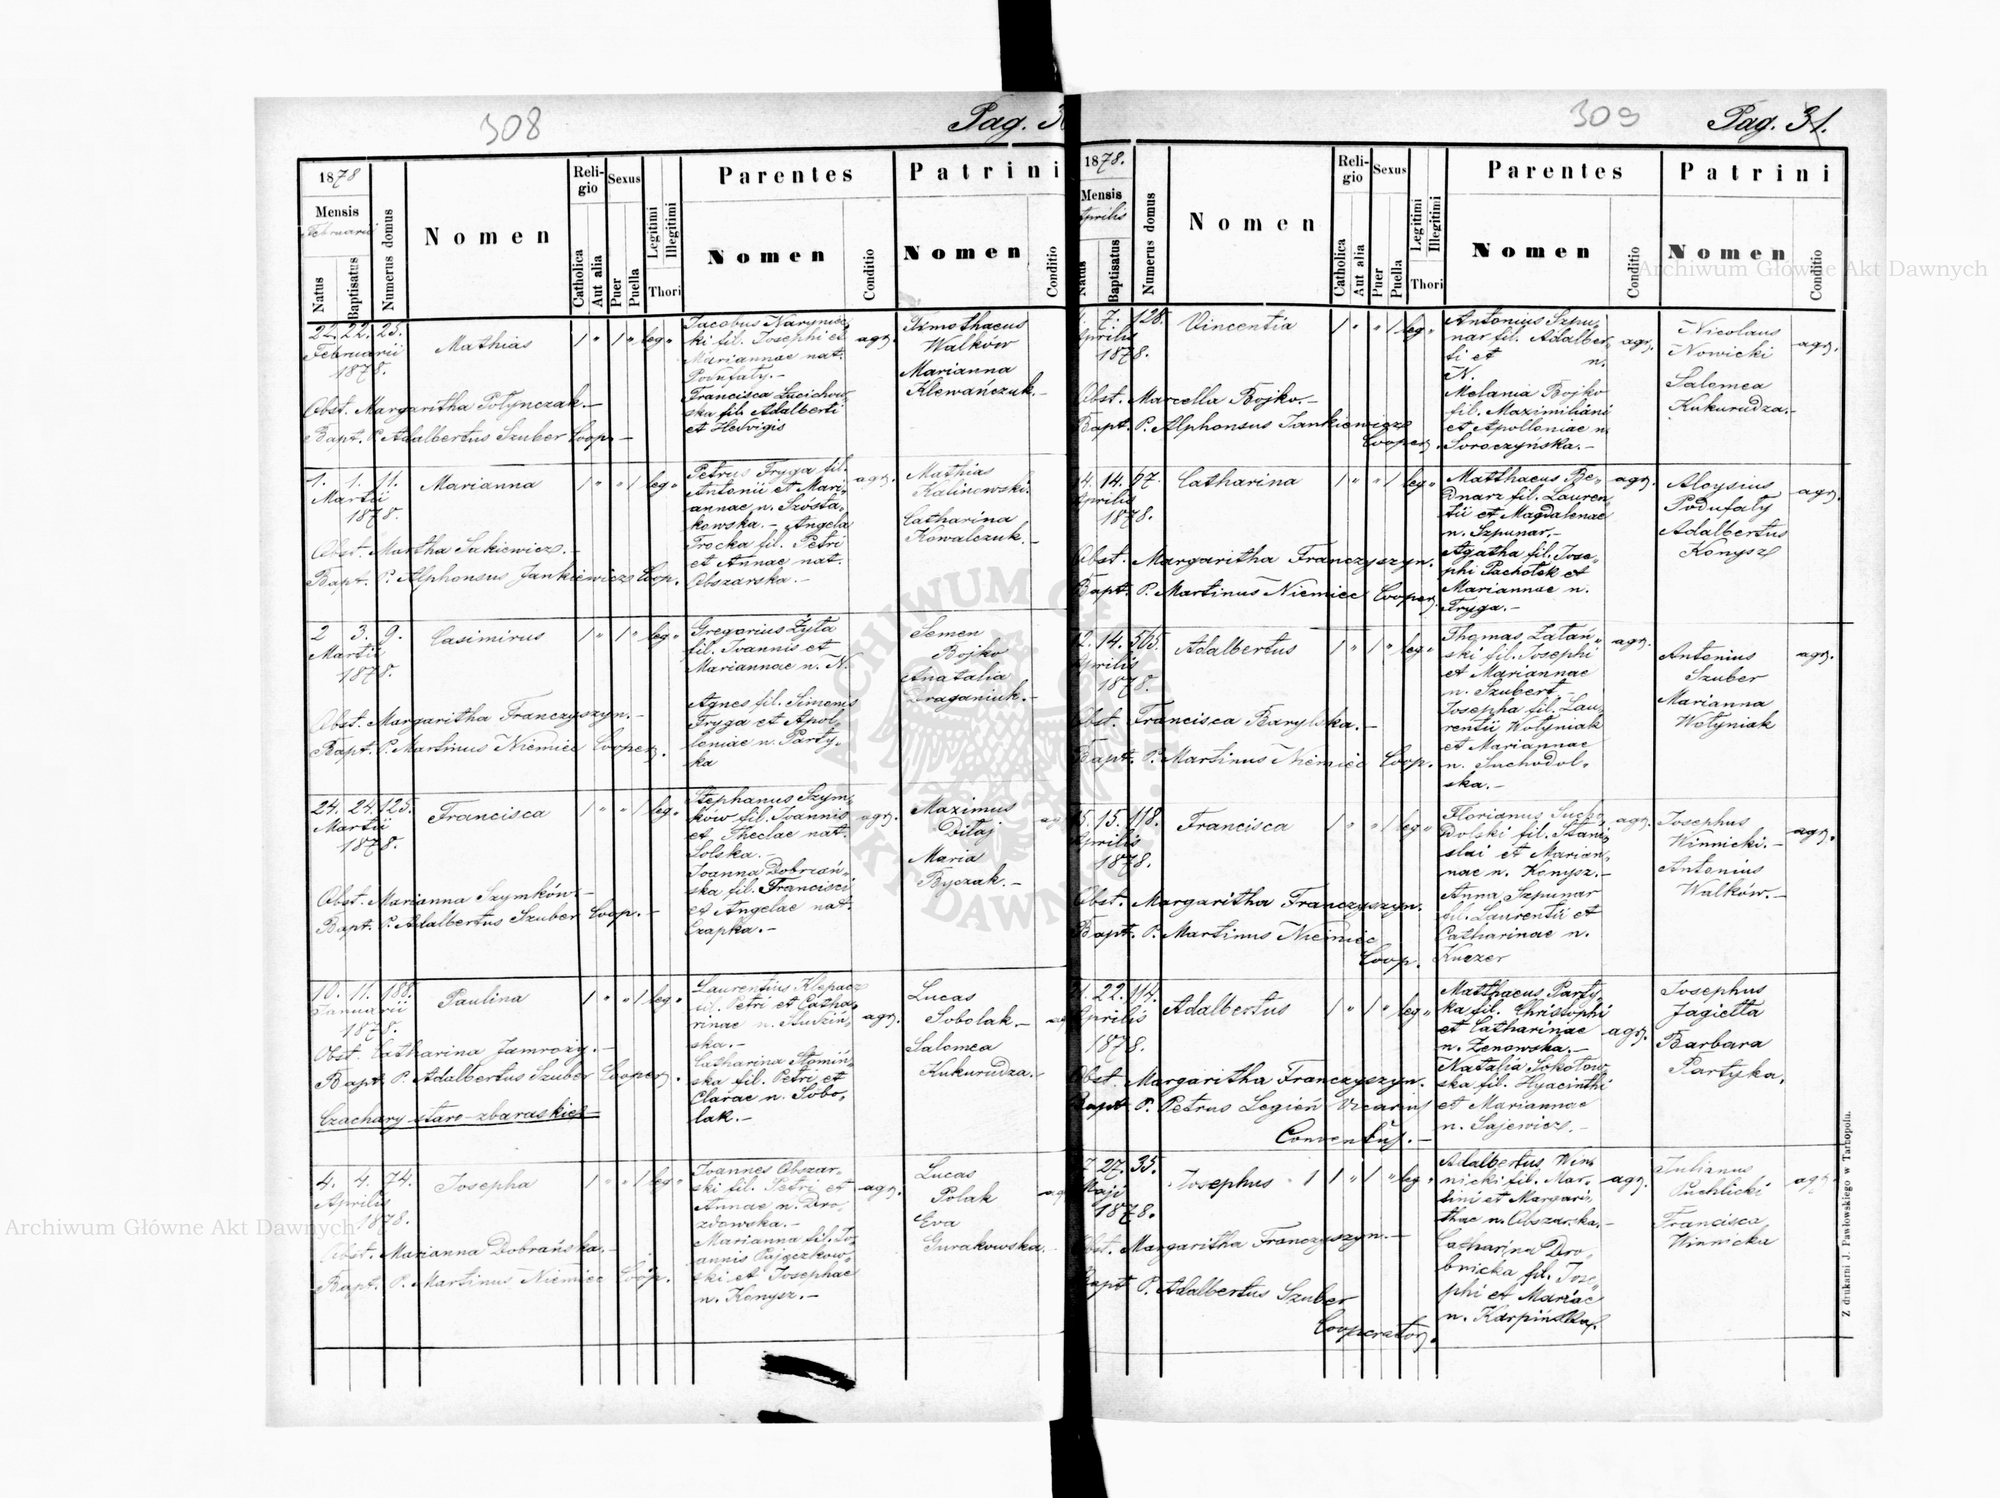 308
Pag. 3
1878
Mensis
Februarii
Natus
Baptisatus
Numerus domus
Nomen
Religio
Catholica
Aut alia
Sexus
Puer
Puella
Legitimi
Illegitimi
Thori
Parentes
Nomen
Conditio
Patrini
Nomen
Conditio
22. 22. 23.
Februarii
1878.
Mathias
1 " 1 " leg "
Jacobus Naryniec-
ki fil. Josephi et
Mariannae nat.
Podufaty.-
Francisca
ska fil. Adalberti
et Hedvigis
agr.
Timothaeus
Walków
Marianna
Klewańczuk.-
Obst. Margaritha Potynczak.-
Bapt. P. Adalbertus Szuber Coop.-
1. 1. 11.
Martii
1878.
Marianna
1 " " 1 leg "
Petrus Fryga fil.
Antonii et Mari-
annae n. Szosta-
kowska.- Angela
Trocka fil. Petri
et Annae nat.
Obszarska.-
agr.
Mathias
Kalinowski.
Catharina
Kowalczuk.-
Obst. Martha Sakiewicz.-
Bapt. P. Alphonsus Jankiewicz Coop.
2 3. 9.
Martii
1878.
Casimirus
1 " 1 " leg "
Gregorius Zyta
fil. Joannis et
Mariannae n. N.
Agnes fil. Simenis
Fryga et Apol-
loniae n. Party-
ka
Semen
Bojko
Anatalia
Draganiuk.-
Obst. Margaritha Franczyszyn.-
Bapt. P. Martinus Niemiec Cooper.
24. 24. 125.
Martii
1878.
Francisca
1 " " 1 leg "
Stephanus Szym-
ków fil. Joannis
et Theclae nat.
Solska.-
Joanna Dobrzań-
ska fil. Francisci
et Angelae nat.
Czapka.-
agr.
Maximus
Ditaj
Maria
Byczak.-
Obst. Marianna Szymków.-
Bapt. P. Adalbertus Szuber Coop.-
10. 11. 188.
Januarii
1878.
Paulina
1 " " 1 leg "
Laurentius Klepacz
fil. Petri et Catha-
rinae n. Studziń-
ska.-
Catharina Stomiń-
ska fil. Petri et
Clarae n. Sobo-
lak.-
agr.
Lucas
Sobolak.-
Salomea
Kukurudza.-
Obst. Catharina Jamroży.-
Bapt. P. Adalbertus Szuber Cooper.
Czachary staro-zbaraskie
4. 4. 74.
Aprilis
1878.
Josepha
1 " " 1 leg "
Joannes Obszar-
ski fil. Petri et
Annae n. Dro-
zdowska.-
Marianna fil. Jo-
annis Pajączkow-
ski et Josephae
n. Konysz.-
agr.
Lucas
Polak
Eva
Gurakowska.-
Obst. Marianna Dobrańska.-
Bapt. P. Martinus Niemiec Coop.
309
Pag. 31.
1878.
Mensis
Aprilis
Natus
Baptisatus
Numerus domus
Nomen
Religio
Catholica
Aut alia
Sexus
Puer
Puella
Legitimi
Illegitimi
Thori
Parentes
Nomen
Conditio
Patrini
Nomen
Conditio
7. 128.
Aprilis
1878.
Vincentia
1 " " 1 leg "
Antonius Szpu-
nar fil. Adalber-
ti et n.
N.
Melania Bojko
fil. Maximiliani
et Apolloniae n.
Soroczyńska.-
agr.
Nicolaus
Nowicki
Salomea
Kukurudza.-
agr.
Obst. Marcella Bojko.-
Bapt. P. Alphonsus Jankiewicz
Cooper.
14. 14. 67.
Aprilis
1878.
Catharina
1 " " 1 leg "
Matthaeus Be-
dnarz fil. Lauren-
tii et Magdalenae
n. Szpunar.-
Agatha fil. Jose-
phi Pachotek et
Mariannae n.
Fryga.-
agr.
Aloysius
Podufaty
Adalbertus
Konysz
agr.
Obst. Margaritha Franczyszyn.
Bapt. P. Martinus Niemiec Cooper.
12. 14. 565.
Aprilis
1878.
Adalbertus
1 " 1 " leg "
Thomas Zatań-
ski fil. Josephi
et Mariannae
n. Szubert.-
Josepha fil. Lau-
rentii Wotyniak
et Mariannae
n. Suchodol-
ska.-
agr.
Antonius
Szuber
Marianna
Wotyniak
agr.
Obst. Francisca Barylska.-
Bapt. P. Martinus Niemiec Coop.
15. 15. 118.
Aprilis
1878.
Francisca
1 " " 1 leg "
Florianus Sucho-
dolski fil. Stani-
slai et Marian-
nae n. Konysz.-
Anna Szpunar
fil. Laurentii et
Catharinae n.
Kuczer
agr.
Josephus
Winnicki.-
Antonius
Walków.-
agr.
Obst. Margaritha Franczyszyn.
Bapt. P. Martinus Niemiec
Coop.
22. 114.
Aprilis
1878.
Adalbertus
1 " 1 " leg "
Matthaeus Party-
ka fil. Christophi
et Catharinae
n. Zenowska.-
Natalia Sokotow-
ska fil. Hyacinthi
et Mariannae
n. Sajewicz.-
agr.
Josephus
Jagietta
Barbara
Partyka.
Obst. Margaritha Franczyszyn.
Bapt. P. Petrus Legień Vicarius
Conventus.-
27. 35.
Maji
1878.
Josephus
1 " 1 " leg "
Adalbertus Win-
nicki fil. Mar-
tini et Margari-
thae n. Obszarska.-
Catharina Dro-
bnicka fil. Jose-
phi et Mariae
n. Karpińska.
agr.
Julianus
Puchlicki
Francisca
Winnicka
agr.
Obst. Margaritha Franczyszyn.-
Bapt P. Adalbertus Szuber
Cooperator.
Z drukarni J. Pawłowskiego w Tarnopolu.
Archiwum Główne Akt Dawnych
Archiwum Główne Akt Dawnych